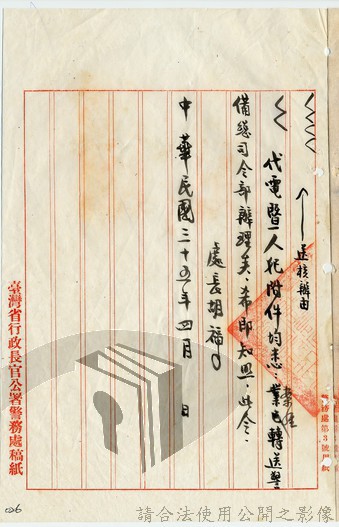 送核辦由
代電暨一人犯附件均悉，業已轉送警
備總司令部辦理矣，希即知照，此令。
處長胡福
中華民國三十五年四月 日
臺灣省行政長官公署警務處稿紙
026
請合法使用公開之影像